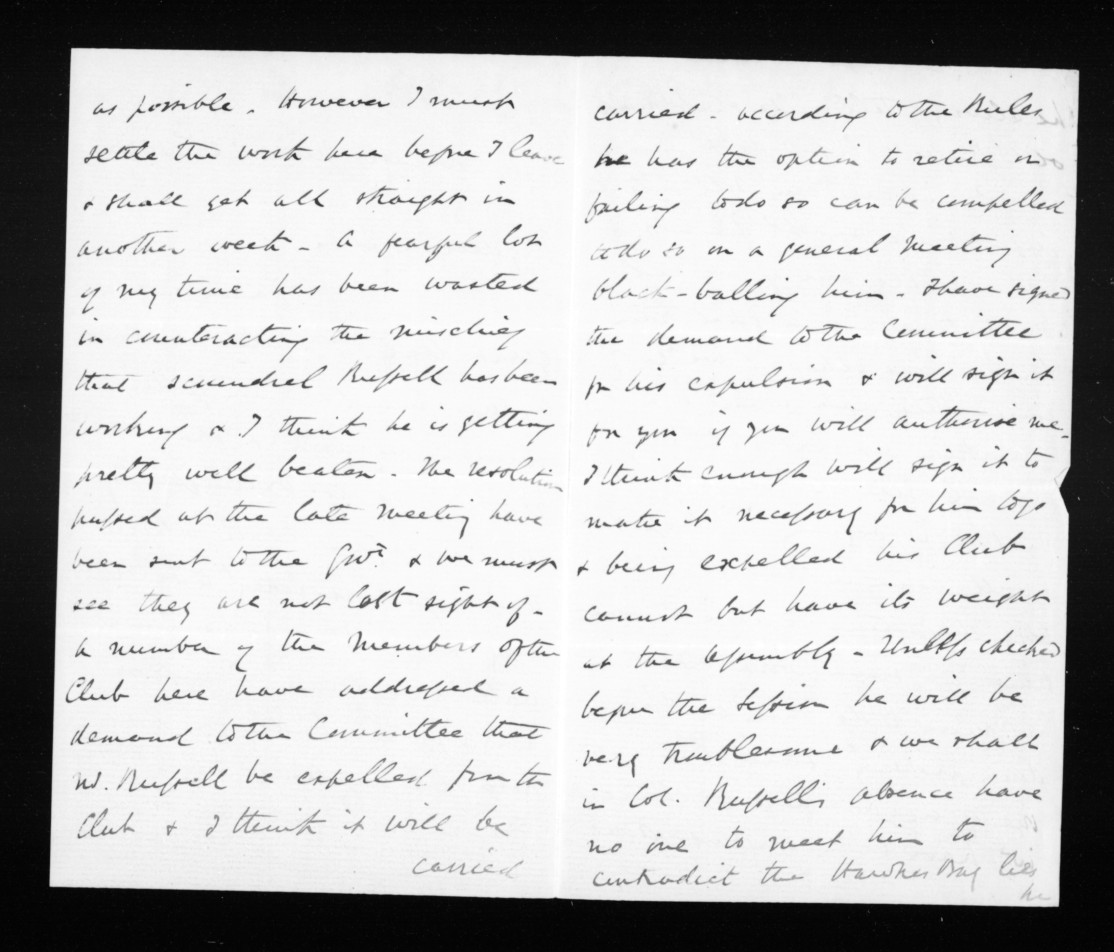 as possible. However I must
settle the work here before I leave
& shall get all straight in
another week - A fearful lot
of my time has been wasted
in counteracting the mischief
that scoundrel Russell has been
working & I think he is getting
pretty well beaten - The resolution
passed at the late Meeting have
been sent to the Govt. & we must
see they are not lost sight of -
a number of the Members of the
Club here have addressed a
demand to the Committee that
Russell be expelled from the
Club & I think it will be
carried
carried - according to the Rules
he has the option to retire or
failing to do so can be compelled
to do so on a general Meeting
black-balling him - I have signed
the demand to the Committee
for his expulsion & will sign it
for you if you will authorise me -
I think enough will sign it to
make it necessary for him to go
& being expelled his Club
cannot but have its weight
at the Assembly - Unless checked
before the Session he will be
very troublesome & we shall
in Col. Russell's absence have
no one to meet him to
contradict the Hawkes Bay lies
he